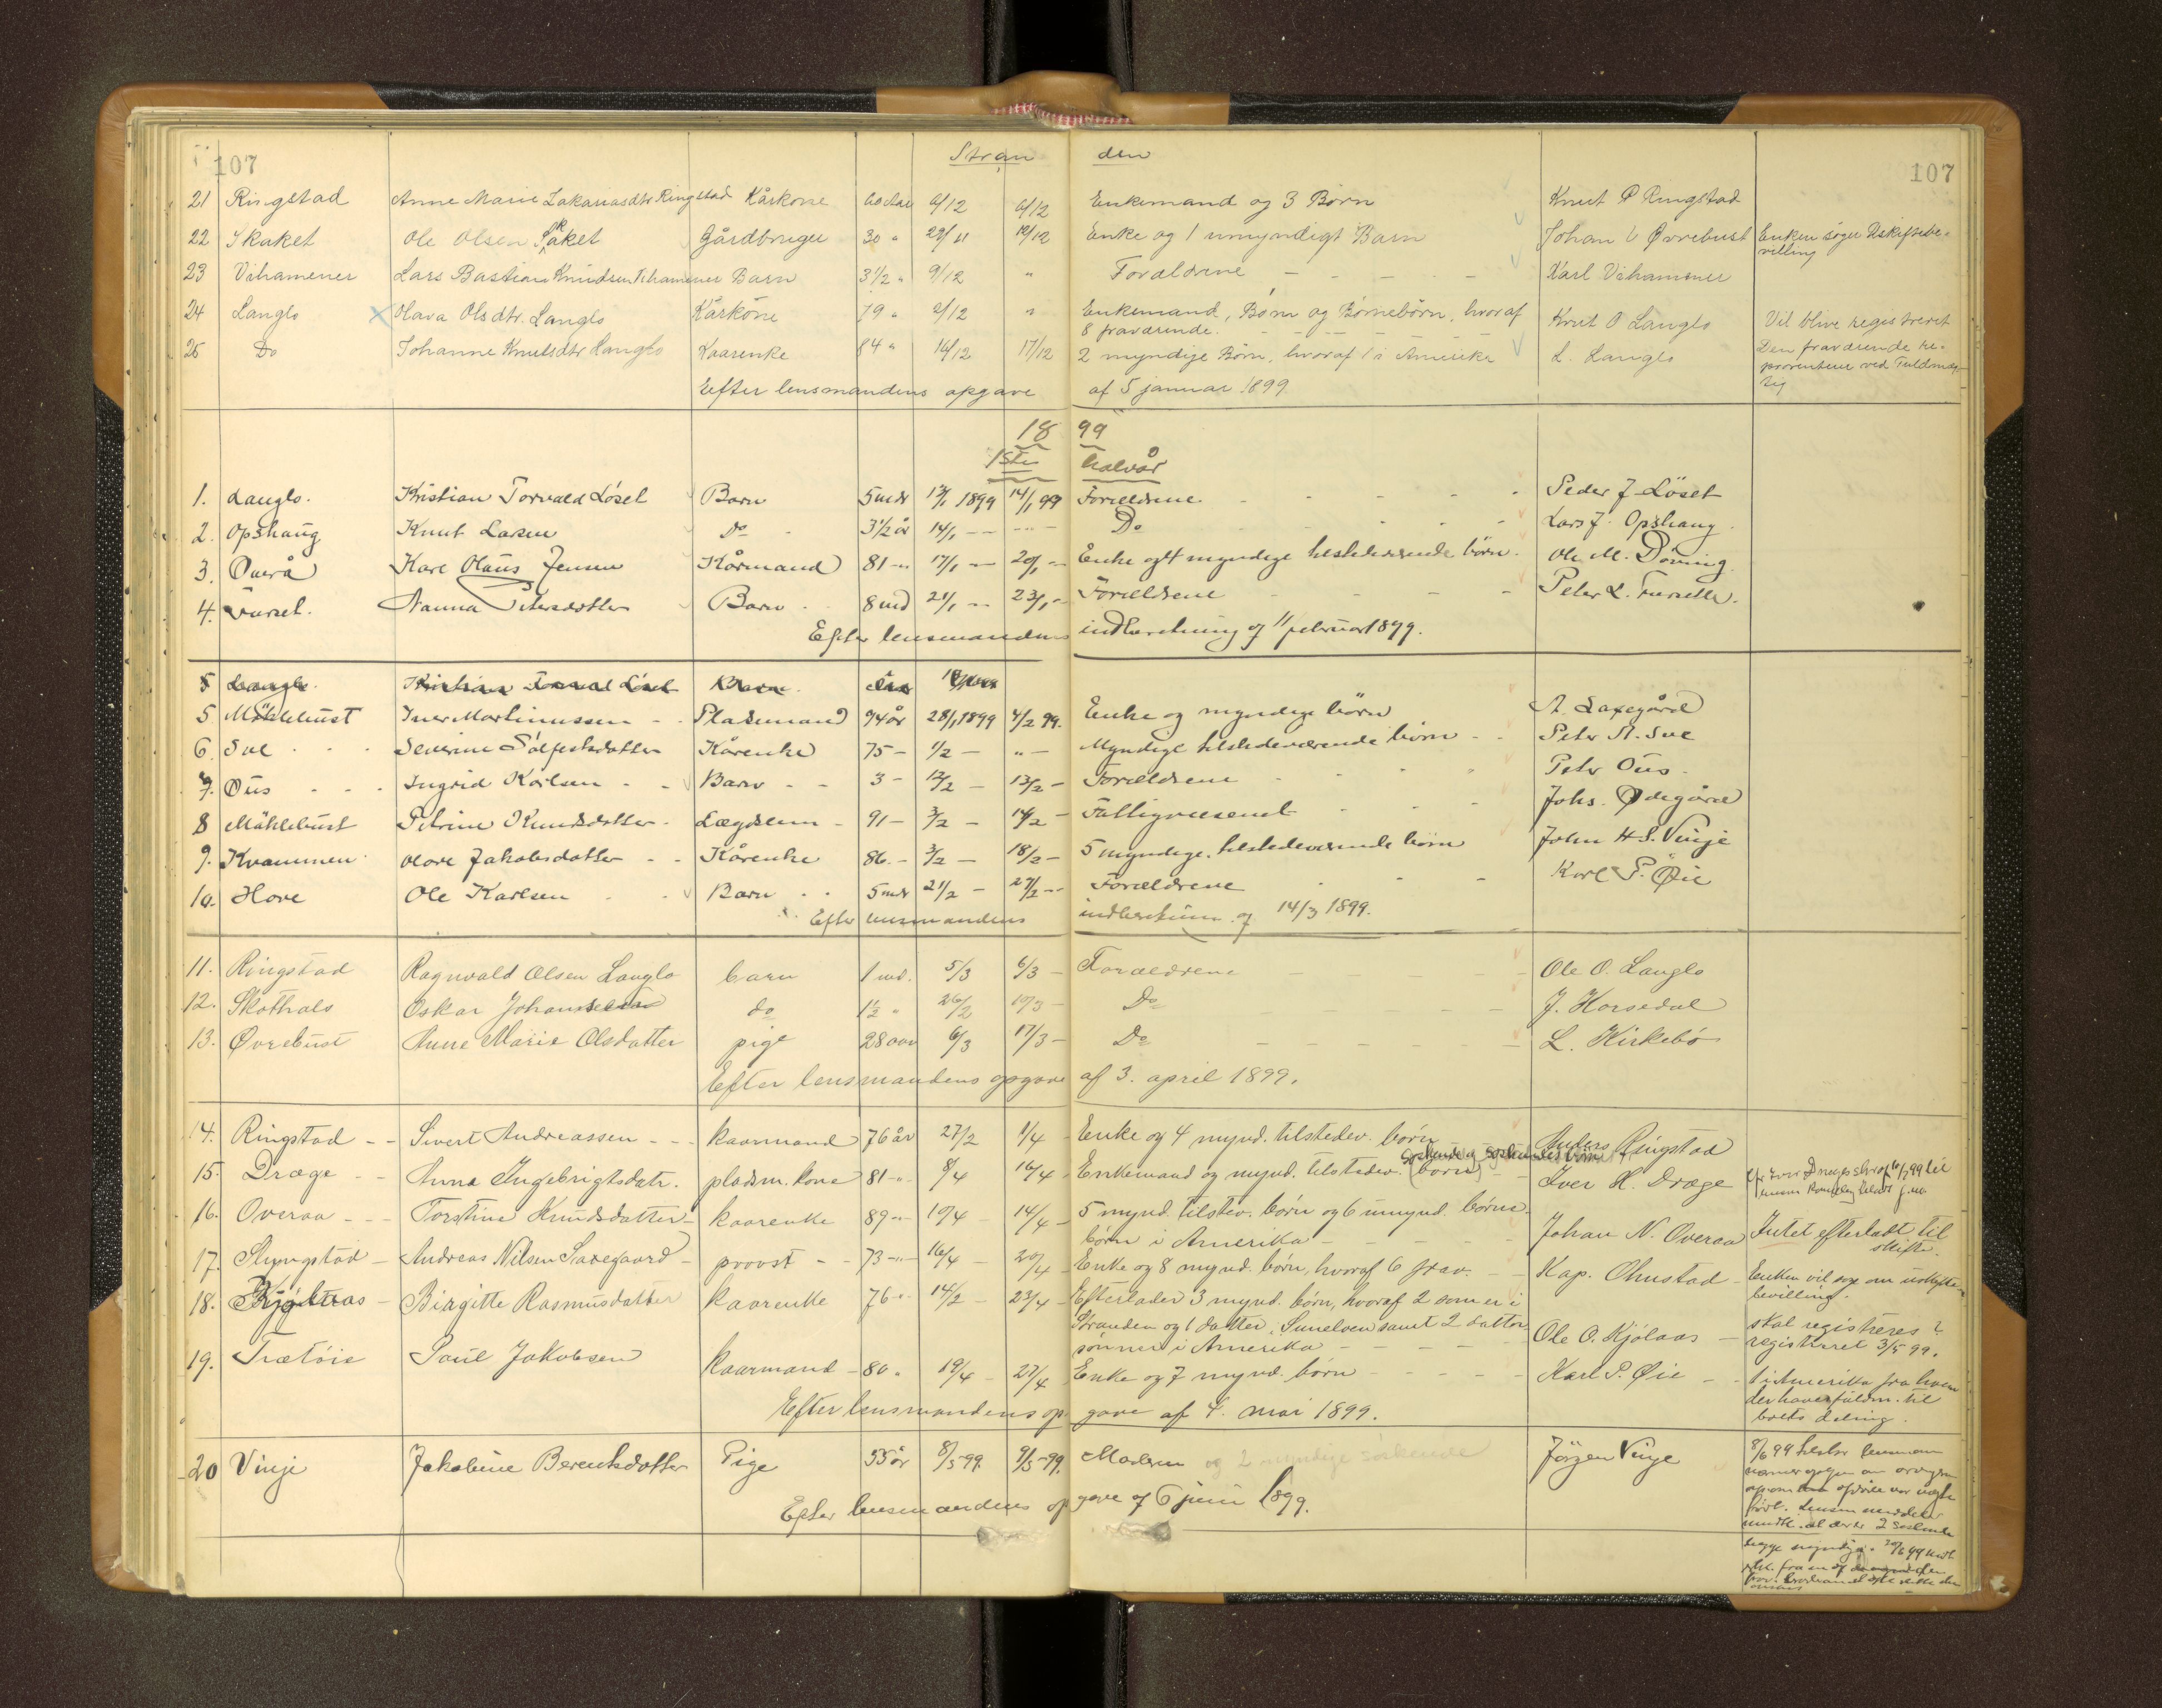 107 Stran den 107
21 Ringstad Anne Marie Zakariasdtr Ringstad Kårkone 60 Aar 6/12 6/12 Enkemand og 3 Børn Knut P Ringstad
22 Skaket Ole Olsen Skaket Gårdbruger 30 " 29/11 12/12 Enke og 1 umyndigt Barn Johan Øvrebust Enken søger Uskiftebe-
villing
23 Vihamener Lars Bastian Knudsen Vihamener Barn 3 1/2 " 9/12 " Forældrene Karl Vihamener
24 Langlo Olava Olsdtr. Langlo Kårkone 79 " 2/12 " Enkemand, Børn og Børnebørn, hvoraf Knut O Langlo Vil blive registreret
8 fraværende.
25 Do Johanne Knutsdtr Langlo Kaarenke 84 " 14/12 17/12 2 myndige Børn, hvoraf 1 i Amerika L. Langlo Den fraværende re-
præsenteres ved Fuldmæg-
tig
Efter lensmandens opgave af 5 januar 1899
18 99
1ste halvår
1. Langlo. Kristian Torvald Löset Barn 5 mdr 12/1 1899 14/1 99 Forældrene Peder J Löset
2. Opshaug Knut Larsen Do 3 1/2 år 14/1 Do Lars J. Opshaug
3. Överå Karl Olaus Jensen Kårmand 81 17/1 20/1 Enke og 4 myndige tilstedeværende börn. Ole M. Döving
4. Furset. Nanna Petersdotter Barn 8 md 21/1 23/1 Forældrene Peter L. Fursette.
Efter lensmandens indberetning af 11 februar 1899.
5 Langlo. Kristian Torvald Löset Barn
5 Mählebust Iver Martinussen Pladsmand 74 år 28/1 1899 4/2 99. Enke og myndige börn A. Saxegård
6. Sve Severine Sölfestsdotter Kårenke 75 1/2 Myndige tilstedeværende börn Peter A. Sve
7. Öus Ingrid Karlsen Barn 3 12/2 13/2 Forældrene Peter Öus.
8 Mählebust Petrine Knudsdotter Lægdslem 91 3/2 14/2 Fattigvæsenet Johs. Ødegård
9. Kvammen Olave Jakobsdotter Kårenke 86. 3/2 18/2 5 myndige tilstedeværende börn John H S. Vinje
10. Hove Ole Karlsen Barn 5 mdr 21/2 27/2 Forældrene Karl P. Øie
Efter lensmandens indberetning af 14/3 1899.
11. Ringstad Ragnvald Olsen Langlo barn 1 md. 5/3 6/3 Forældrene Ole O. Langlo
12. Skothals Oskar Johannessen do 1 1/2 " 26/2 10/3 Do J. Horsedal
13. Øvrebust Anne Marie Olsdatter pige 28 aar 6/3 17/3 Do L. Kirkebö
Efter lensmandens opgave af 3. april 1899.
14. Ringstad Sivert Andreassen kaarmand 76 år 27/2 1/4 Enke og 4 mynd. tilstedev. börn Anders Ringstad
15. Dræge Anna Ingebrigtsdatr. pladsm. kone 81 8/4 16/4 Enkemand og mynd. tilstedev. (börn) söskende og söskendesbörn Iver H. Dræge
16. Overaa Torstine Knudsdatter kaarenke 89 10/4 14/4 5 mynd. tilstev. börn og 6 umynd. börne-
börn i Amerika Johan N. Overaa Intet efterladt til
skifte.
17. Slyngstad Andreas Nilsen Saxegaard provst 73 16/4 20/4 Enke og 8 mynd. börn, hvoraf 6 frav. Kap. Ohnstad Enken vil søge om uskifte-
bevilling.
18. Kjölaas Birgitte Rasmusdatter kaarenke 76 14/2 23/4 Efterlader 3 mynd. börn, hvoraf 2 som er i
Stranden og 1 datter i Sunelven samt 2 datter
sønner i Amerika Ole O. Kjölaas skal registreres?
registreret 3/5 99.
19. Trætöie Paul Jakobsen kaarmand 80 " 19/4 27/4 Enke og 7 mynd. börn Karl P. Øie 1 i Amerika fra hvem
der haves fuldm. til
boets deling.
Efter lensmandens opgave af 4. mai 1899.
20 Vinje Jakobine Berentsdotter Pige 55 år 8/5 99. 9/5 99. Moderen og 2 myndige söskende Jörgen Vinje
Efter lensmandens opgave af 6 juni 1899.